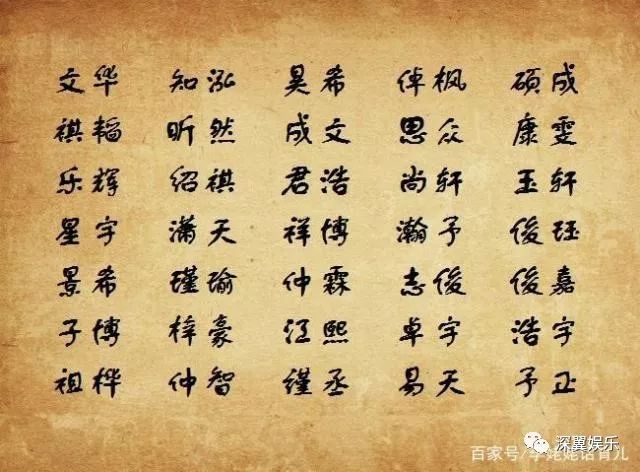 文华 知泓 昊希 倬枫 硕成
祺韬 昕然 成文 思众 康雯
乐辉 绍祺 君浩 尚轩 玉轩
星宇 潇天 祥博 瀚予 俊珏
景希 瑾瑜 仲霖 志俊 俊嘉
子博 梓豪 江熙 卓宇 浩宇
祖桦 仲智 缰丞 易天 予正
深翼娱乐
百家号/李姥姥话育儿